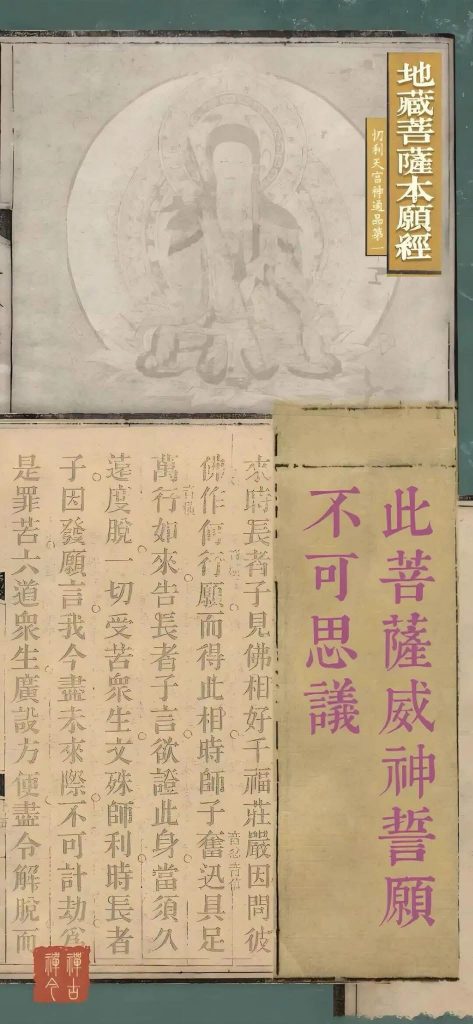 地藏菩薩本願經
忉利天宮神通品第一
此菩薩威神誓願
不可思議
來時長者子見佛相好千福莊嚴因問彼
佛作何行願而得此相時師子奮迅具足
萬行如來告長者子言欲證此身當須久
遠度脫一切受苦衆生文殊師利時長者
子因發願言我今盡未來際不可計劫爲
是罪苦六道衆生廣設方便盡令解脫而
禪古
禪今